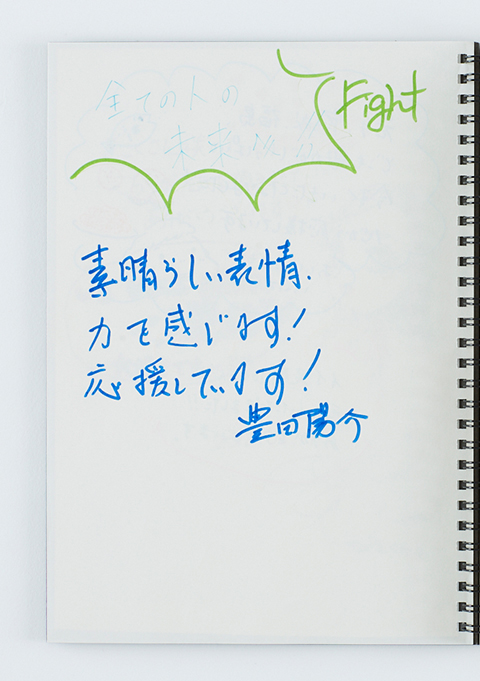 全ての人の
未来
Fight
素晴らしい表情.
力を感じます!
応援しています!
豊田陽介